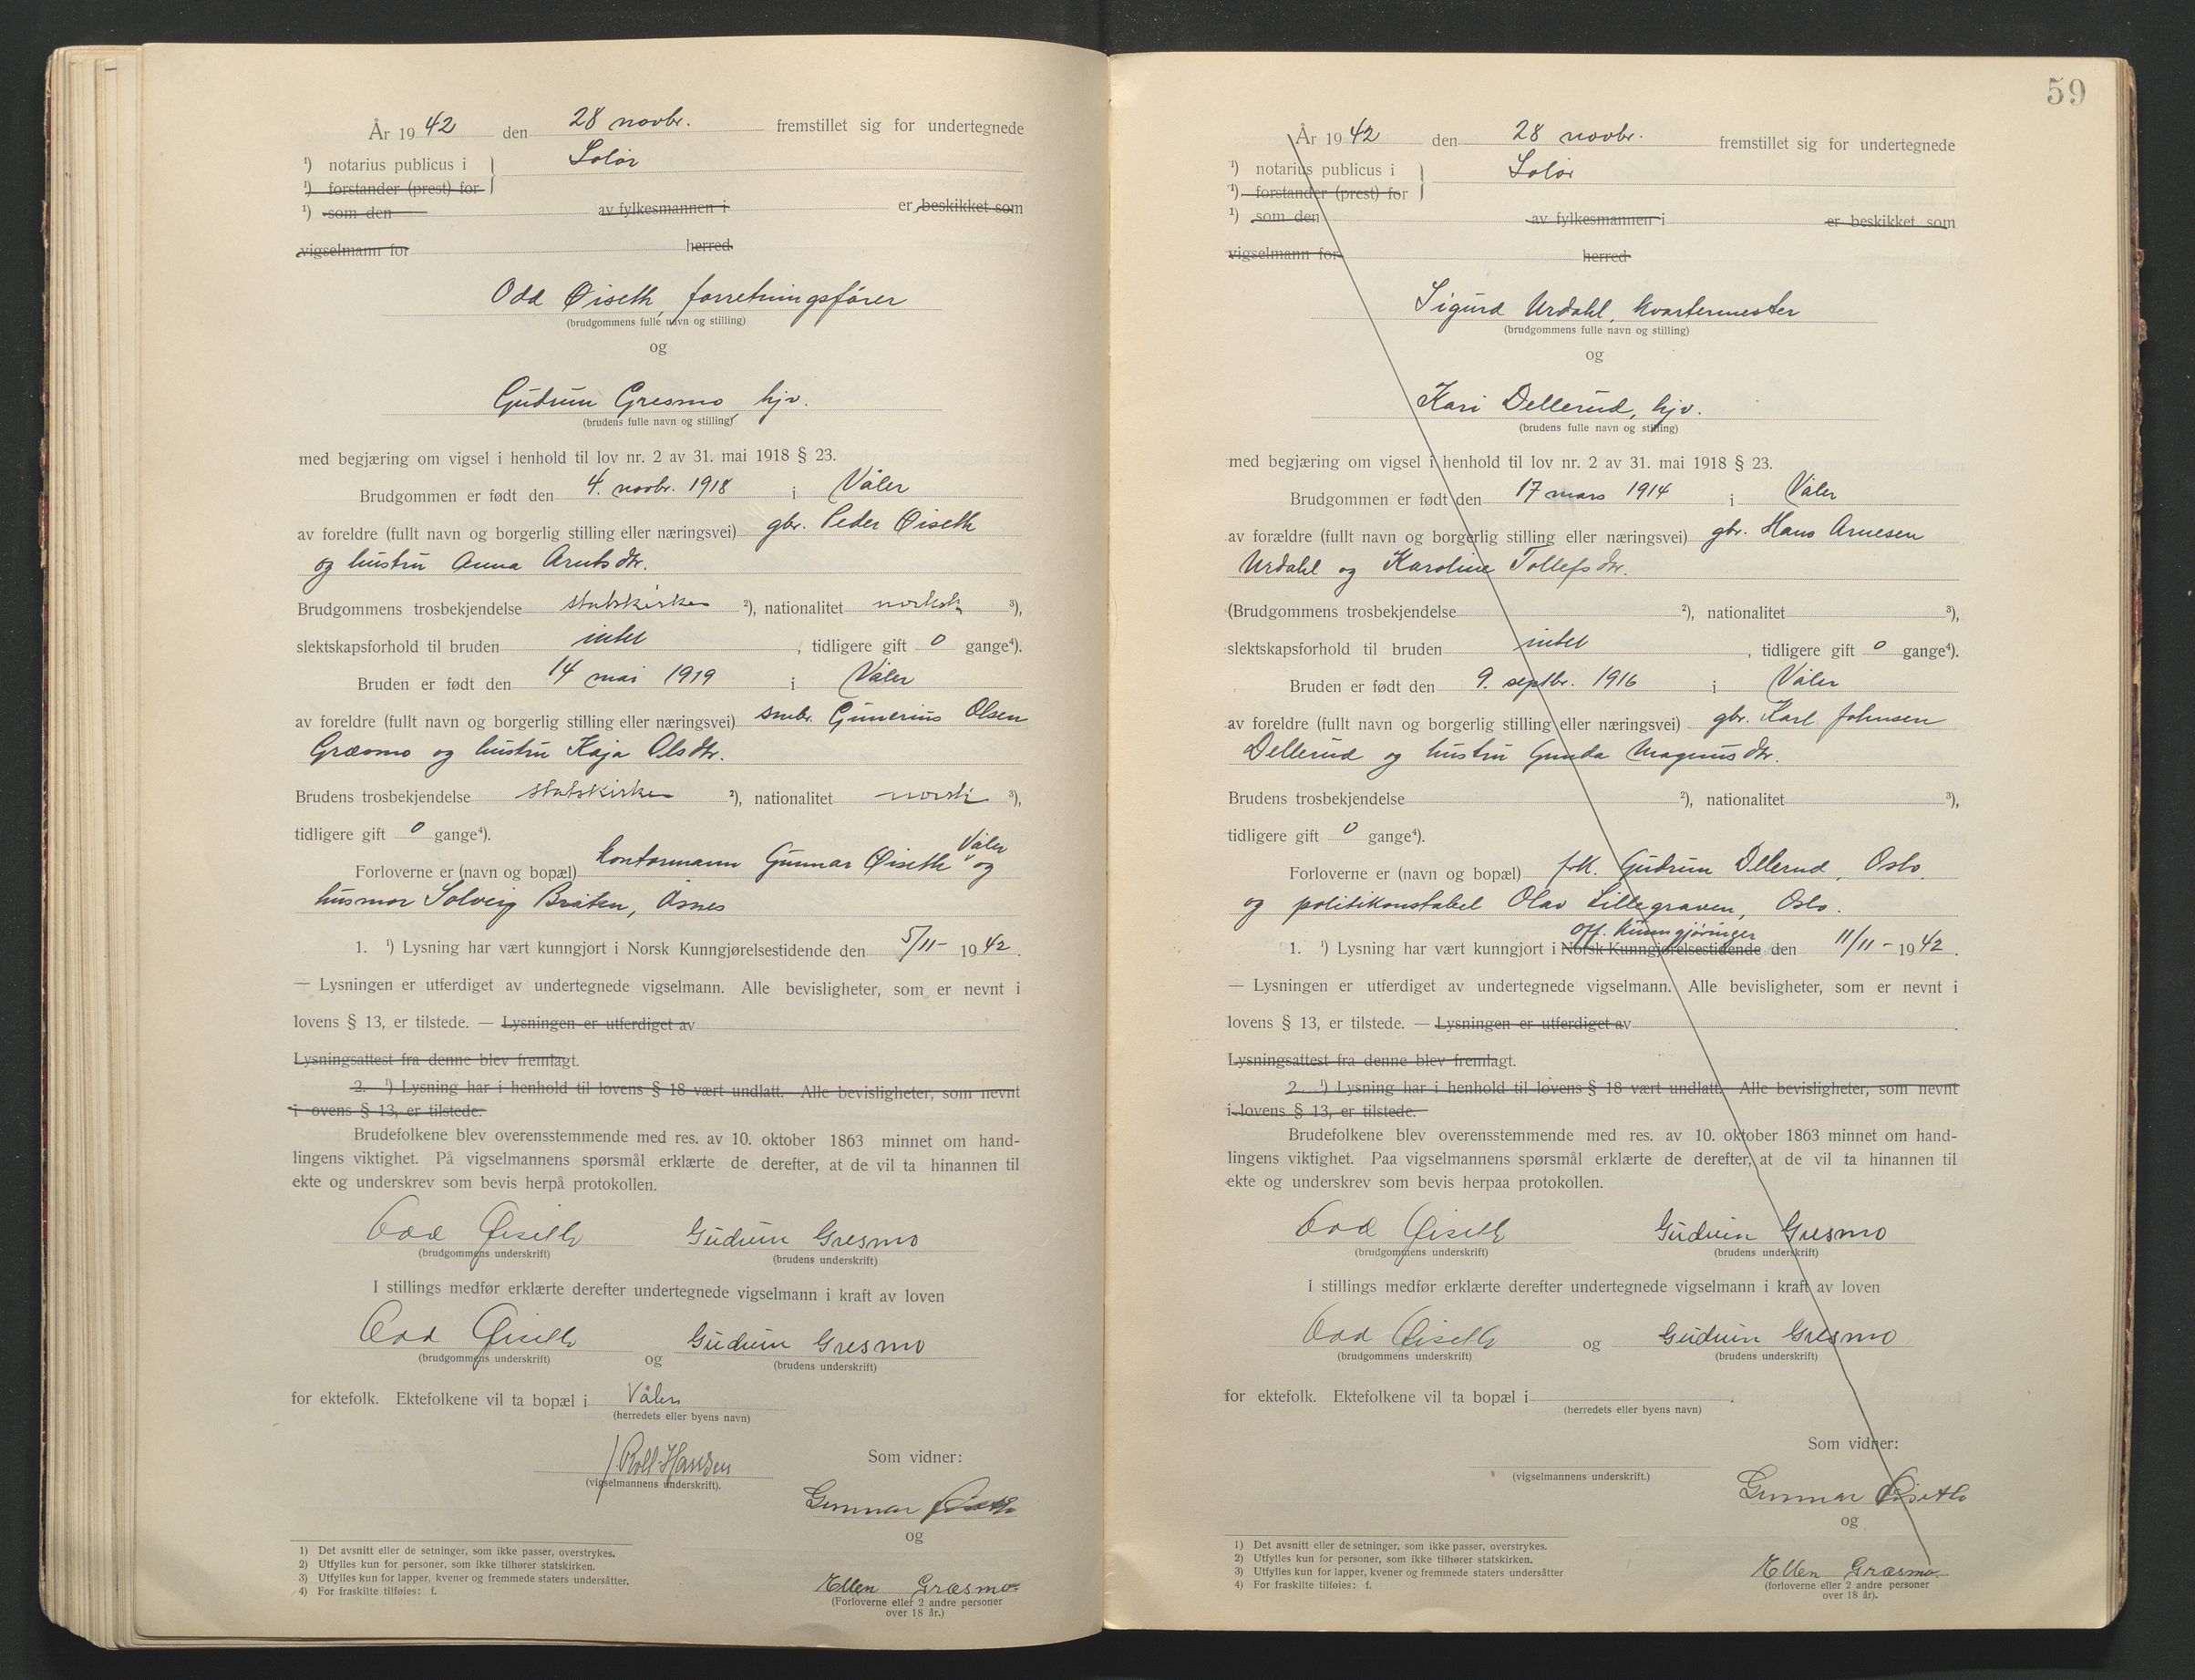 År 1942 den 28 novbr. fremstillet sig for undertegnede
¹) notarius publicus i } Solør
¹) forstander (prest) for
¹) som den av fylkesmannen i er beskikket som
vigselmann for herred
Odd Øiseth, forretningsfører
(brudgommens fulle navn og stilling)
og
Gudrun Gresmo hjv.
(brudens fulle navn og stilling)
med begjæring om vigsel i henhold til lov nr. 2 av 31. mai 1918 § 23.
Brudgommen er født den 4. novbr. 1918 i Våler
av foreldre (fullt navn og borgerlig stilling eller næringsvei) gbr. Peder Øiseth
og hustru Anna Arntsdtr.
Brudgommens trosbekjendelse statskirken ²), nationalitet norsk ³),
slektskapsforhold til bruden intet , tidligere gift 0 gange⁴).
Bruden er født den 14 mai 1919 i Våler
av foreldre (fullt navn og borgerlig stilling eller næringsvei) smbr. Gunerius Olsen
Græsmo og hustru Kaja Olsdtr.
Brudens trosbekjendelse statskirken ²), nationalitet norsk ³),
tidligere gift 0 gange⁴).
Forloverne er (navn og bopæl) kontormann Gunnar Øiseth Våler og
husmor Solveig Bråten, Åsnes
1. ¹) Lysning har vært kunngjort i Norsk Kunngjørelsestidende den 5/11- 1942.
— Lysningen er utferdiget av undertegnede vigselmann. Alle bevisligheter, som er nevnt i
lovens § 13, er tilstede. — Lysningen er utferdiget av
Lysningsattest fra denne blev fremlagt.
2. ¹) Lysning har i henhold til lovens § 18 vært undlatt. Alle bevisligheter, som nevnt
i ovens § 13, er tilstede.
Brudefolkene blev overensstemmende med res. av 10. oktober 1863 minnet om hand-
lingens viktighet. På vigselmannens spørsmål erklærte de derefter, at de vil ta hinannen til
ekte og underskrev som bevis herpå protokollen.
Odd Øiseth Gudrun Gresmo
(brudgommens underskrift) (brudens underskrift)
I stillings medfør erklærte derefter undertegnede vigselmann i kraft av loven
Odd Øiseth og Gudrun Gresmo
(brudgommens underskrift) (brudens underskrift)
for ektefolk. Ektefolkene vil ta bopæl i Våler
(herredets eller byens navn)
J. Roll-Hansen
(vigselmannens underskrift).
Som vidner:
Gunnar Øiseth
og
Ellen Græsmo
(Forloverne eller 2 andre personer
over 18 år.)
1) Det avsnitt eller de setninger, som ikke passer, overstrykes.
2) Utfylles kun for personer, som ikke tilhører statskirken.
3) Utfylles kun for lapper, kvener og fremmede staters undersåtter.
4) For fraskilte tilføies: f.
59
År 1942 den 28 novbr. fremstillet sig for undertegnede
¹) notarius publicus i } Solør
¹) forstander (prest) for
¹) som den av fylkesmannen i er beskikket som
vigselmann for herred
Sigurd Urdahl, kvartermester
(brudgommens fulle navn og stilling)
og
Kari Dellerud, hjv.
(brudens fulle navn og stilling)
med begjæring om vigsel i henhold til lov nr. 2 av 31. mai 1918 § 23.
Brudgommen er født den 17 mars 1914 i Våler
av forældre (fullt navn og borgerlig stilling eller næringsvei) gbr. Hans Arnesen
Urdahl og Karoline Tollefsdtr.
(Brudgommens trosbekjendelse ²), nationalitet ³),
slektskapsforhold til bruden intet , tidligere gift 0 gange⁴).
Bruden er født den 9. septbr. 1916 i Våler
av foreldre (fullt navn og borgerlig stilling eller næringsvei) gbr. Karl Johnsen
Dellerud og hustru Gunda Magnusdtr.
Brudens trosbekjendelse ²), nationalitet ³),
tidligere gift 0 gange⁴).
Forloverne er (navn og bopæl) frk. Gudrun Dllerud, Oslo.
og politikonstabel Olav Lillegraven, Oslo.
off. kunngjøringer
1. ¹) Lysning har vært kunngjort i Norsk Kunngjørelsestidende den 11/11- 1942.
— Lysningen er utferdiget av undertegnede vigselmann. Alle bevisligheter, som er nevnt i
lovens § 13, er tilstede. — Lysningen er utferdiget av .
Lysningsattest fra denne blev fremlagt.
2. ¹) Lysning har i henhold til lovens § 18 vært undlatt. Alle bevisligheter, som nevnt
i lovens § 13, er tilstede.
Brudefolkene blev overensstemmende med res. av 10. oktober 1863 minnet om hand-
lingens viktighet. Paa vigselmannens spørsmål erklærte de derefter, at de vil ta hinannen til
ekte og underskrev som bevis herpaa protokollen.
Odd Øiseth Gudrun Gresmo
(brudgommens underskrift) (brudens underskrift)
I stillings medfør erklærte derefter undertegnede vigselmann i kraft av loven
Odd Øiseth og Gudrun Gresmo
(brudgommens underskrift) (brudens underskrift)
for ektefolk. Ektefolkene vil ta bopæl i .
(herredets eller byens navn)
(vigselmannens underskrift.)
Som vidner:
Gunnar Øiseth
og
Ellen Græsmo
(forloverne eller 2 andre personer
over 18 år).
1) Det avsnitt eller de setninger, som ikke passer, overstrykes.
2) Utfylles kun for personer, som ikke tilhører statskirken.
3) Utfylles kun for lapper, kvener og fremmede staters undersåtter
4) For fraskilte tilføies: f.